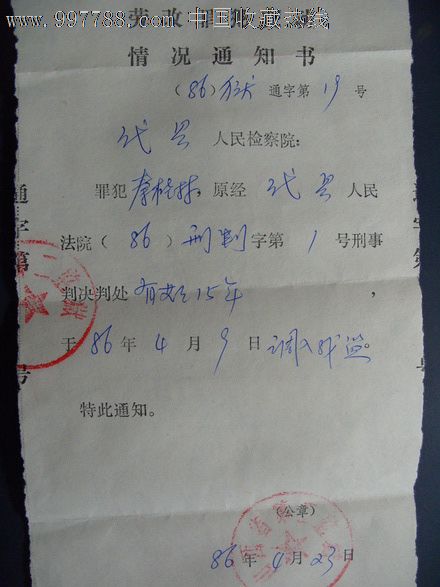 www.997788.com 中国收藏热线
劳改罪犯
情况通知书
（86）狱通字第19号
代县人民检察院：
罪犯 原经代县人民
法院（86）刑判字第1号刑事
判决判处有期15年，
于86年4月9日调入我监。
特此通知。
（公章）
86年4月23日
通字第
号